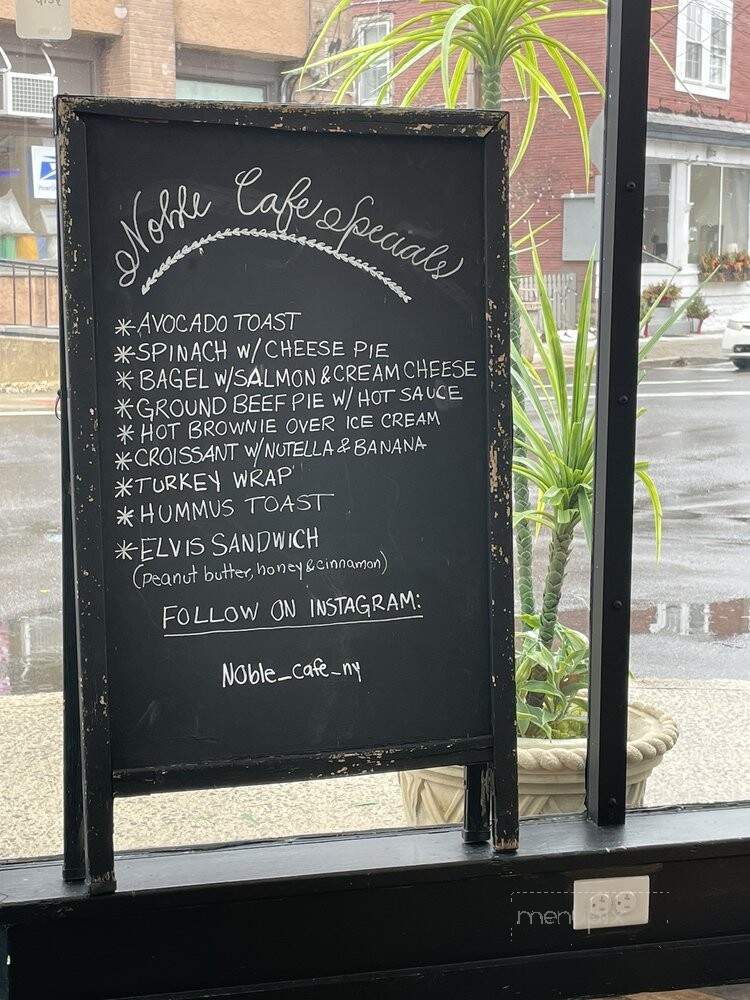 Noble Cafe Specials
* AVOCADO TOAST
* SPINACH W/ CHEESE PIE
* BAGEL W/SALMON & CREAM CHEESE
* GROUND BEEF PIE W/ HOT SAUCE
* HOT BROWNIE OVER ICE CREAM
* CROISSANT W/NUTELLA & BANANA
* TURKEY WRAP
* HUMMUS TOAST
* ELVIS SANDWICH
(Peanut butter, honey & cinnamon)
FOLLOW ON INSTAGRAM:
NOble_cafe_ny